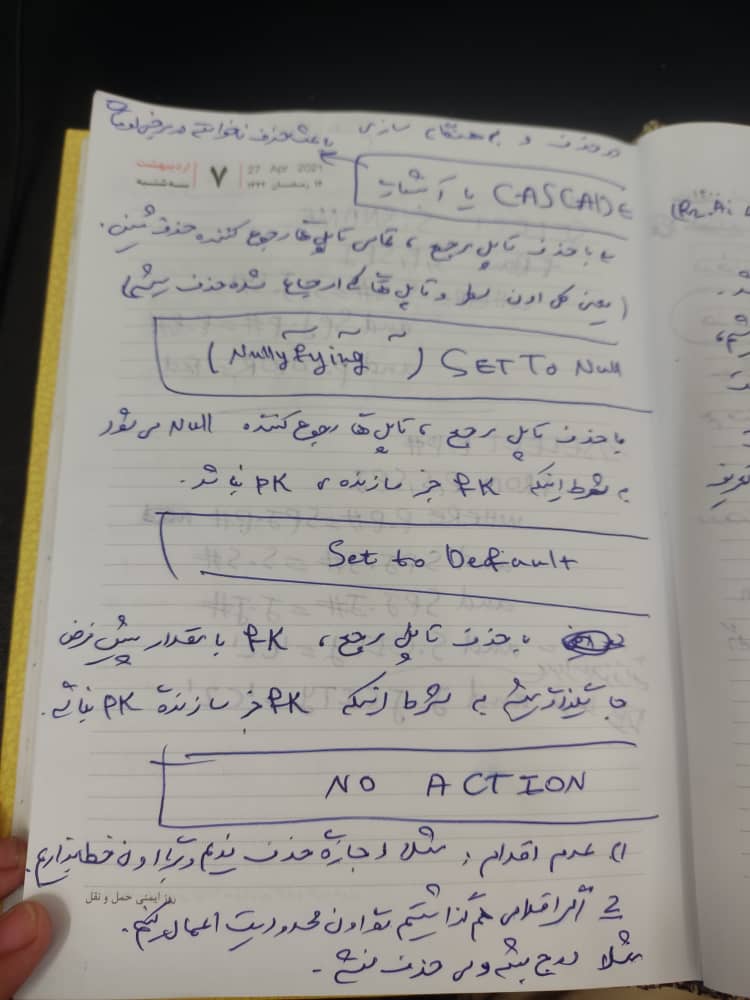 در حذف و به هنگام سازی
باعث حذف ناخواسته در برخی اوقات
اردیبهشت
۷
سه شنبه
27 Apr 2021
۱۴ رمضان ۱۴۴۲
CASCADE یا آبشاری
با حذف تاپل مرجع، تمامی تاپل ها رجوع کننده حذف شن.
(یعنی کل اون سطر و تاپل های ارجاع شده حذف میشه)
SET TO Null (Nullyfying)
با حذف تاپل مرجع، تاپل ها رجوع کننده Null می شود
به شرط اینکه FK جز سازنده PK نباشد.
Set to Default
با حذف تاپل مرجع، FK با مقدار پیش فرض
جایگذاری میشه به شرط اینکه FK جز سازندهٔ PK نباشه.
NO ACTION
1) عدم اقدام: مثلا اجازه حذف ندیم و برا اون خطا بذاریم.
2 اگر اقدامی هم گذاشتیم تو اون محدودیت اعمال کنیم.
مثلا درج بشه ولی حذف نشه.
روز ایمنی حمل و نقل